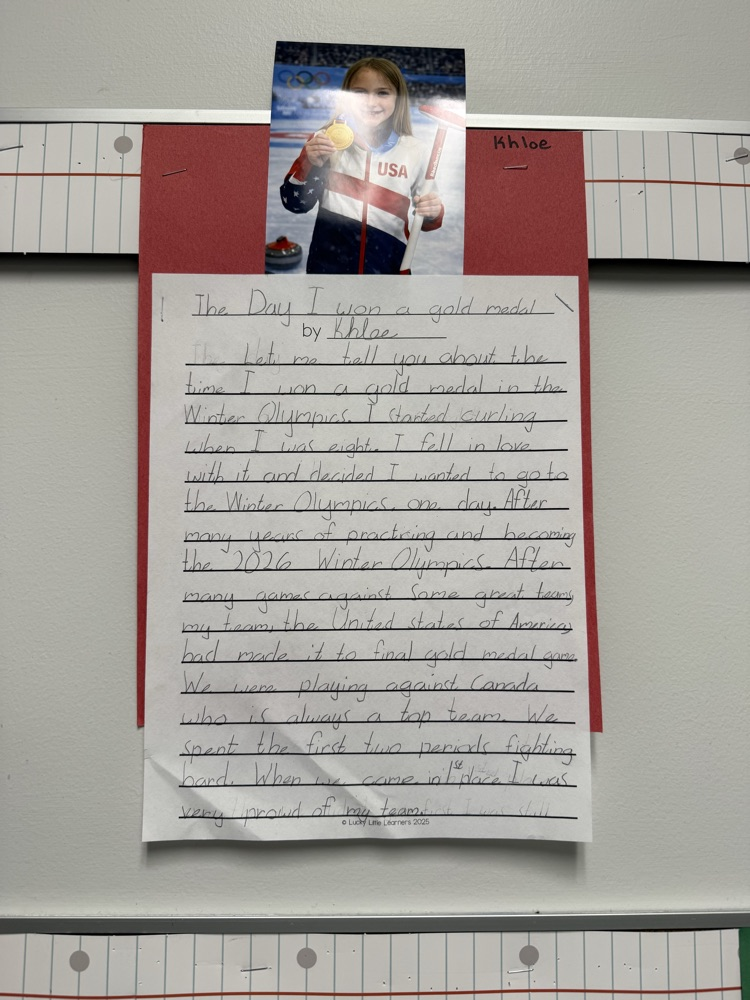 USA
Khloe
The Day I won a gold medal
by Khloe
Let me tell you about the
time I won a gold medal in the
Winter Olympics. I started curling
when I was eight. I fell in love
with it and decided I wanted to go to
the Winter Olympics. one day. After
many years of practicing and becoming
the 2026 Winter Olympics. After
many games against some great teams,
my team, the United states of America,
had made it to final gold medal game.
We were playing against Canada
who is always a top team. We
spent the first two periods fighting
hard. When we came in 1st place I was
very proud of my team.
© Lucky Little Learners 2025